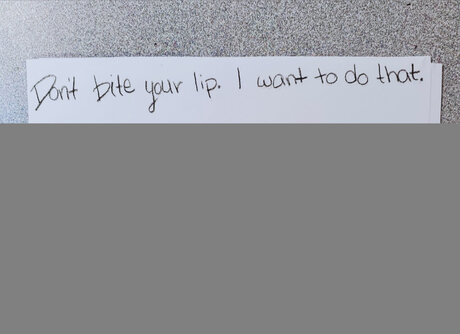 Don't bite your lip. I want to do that.